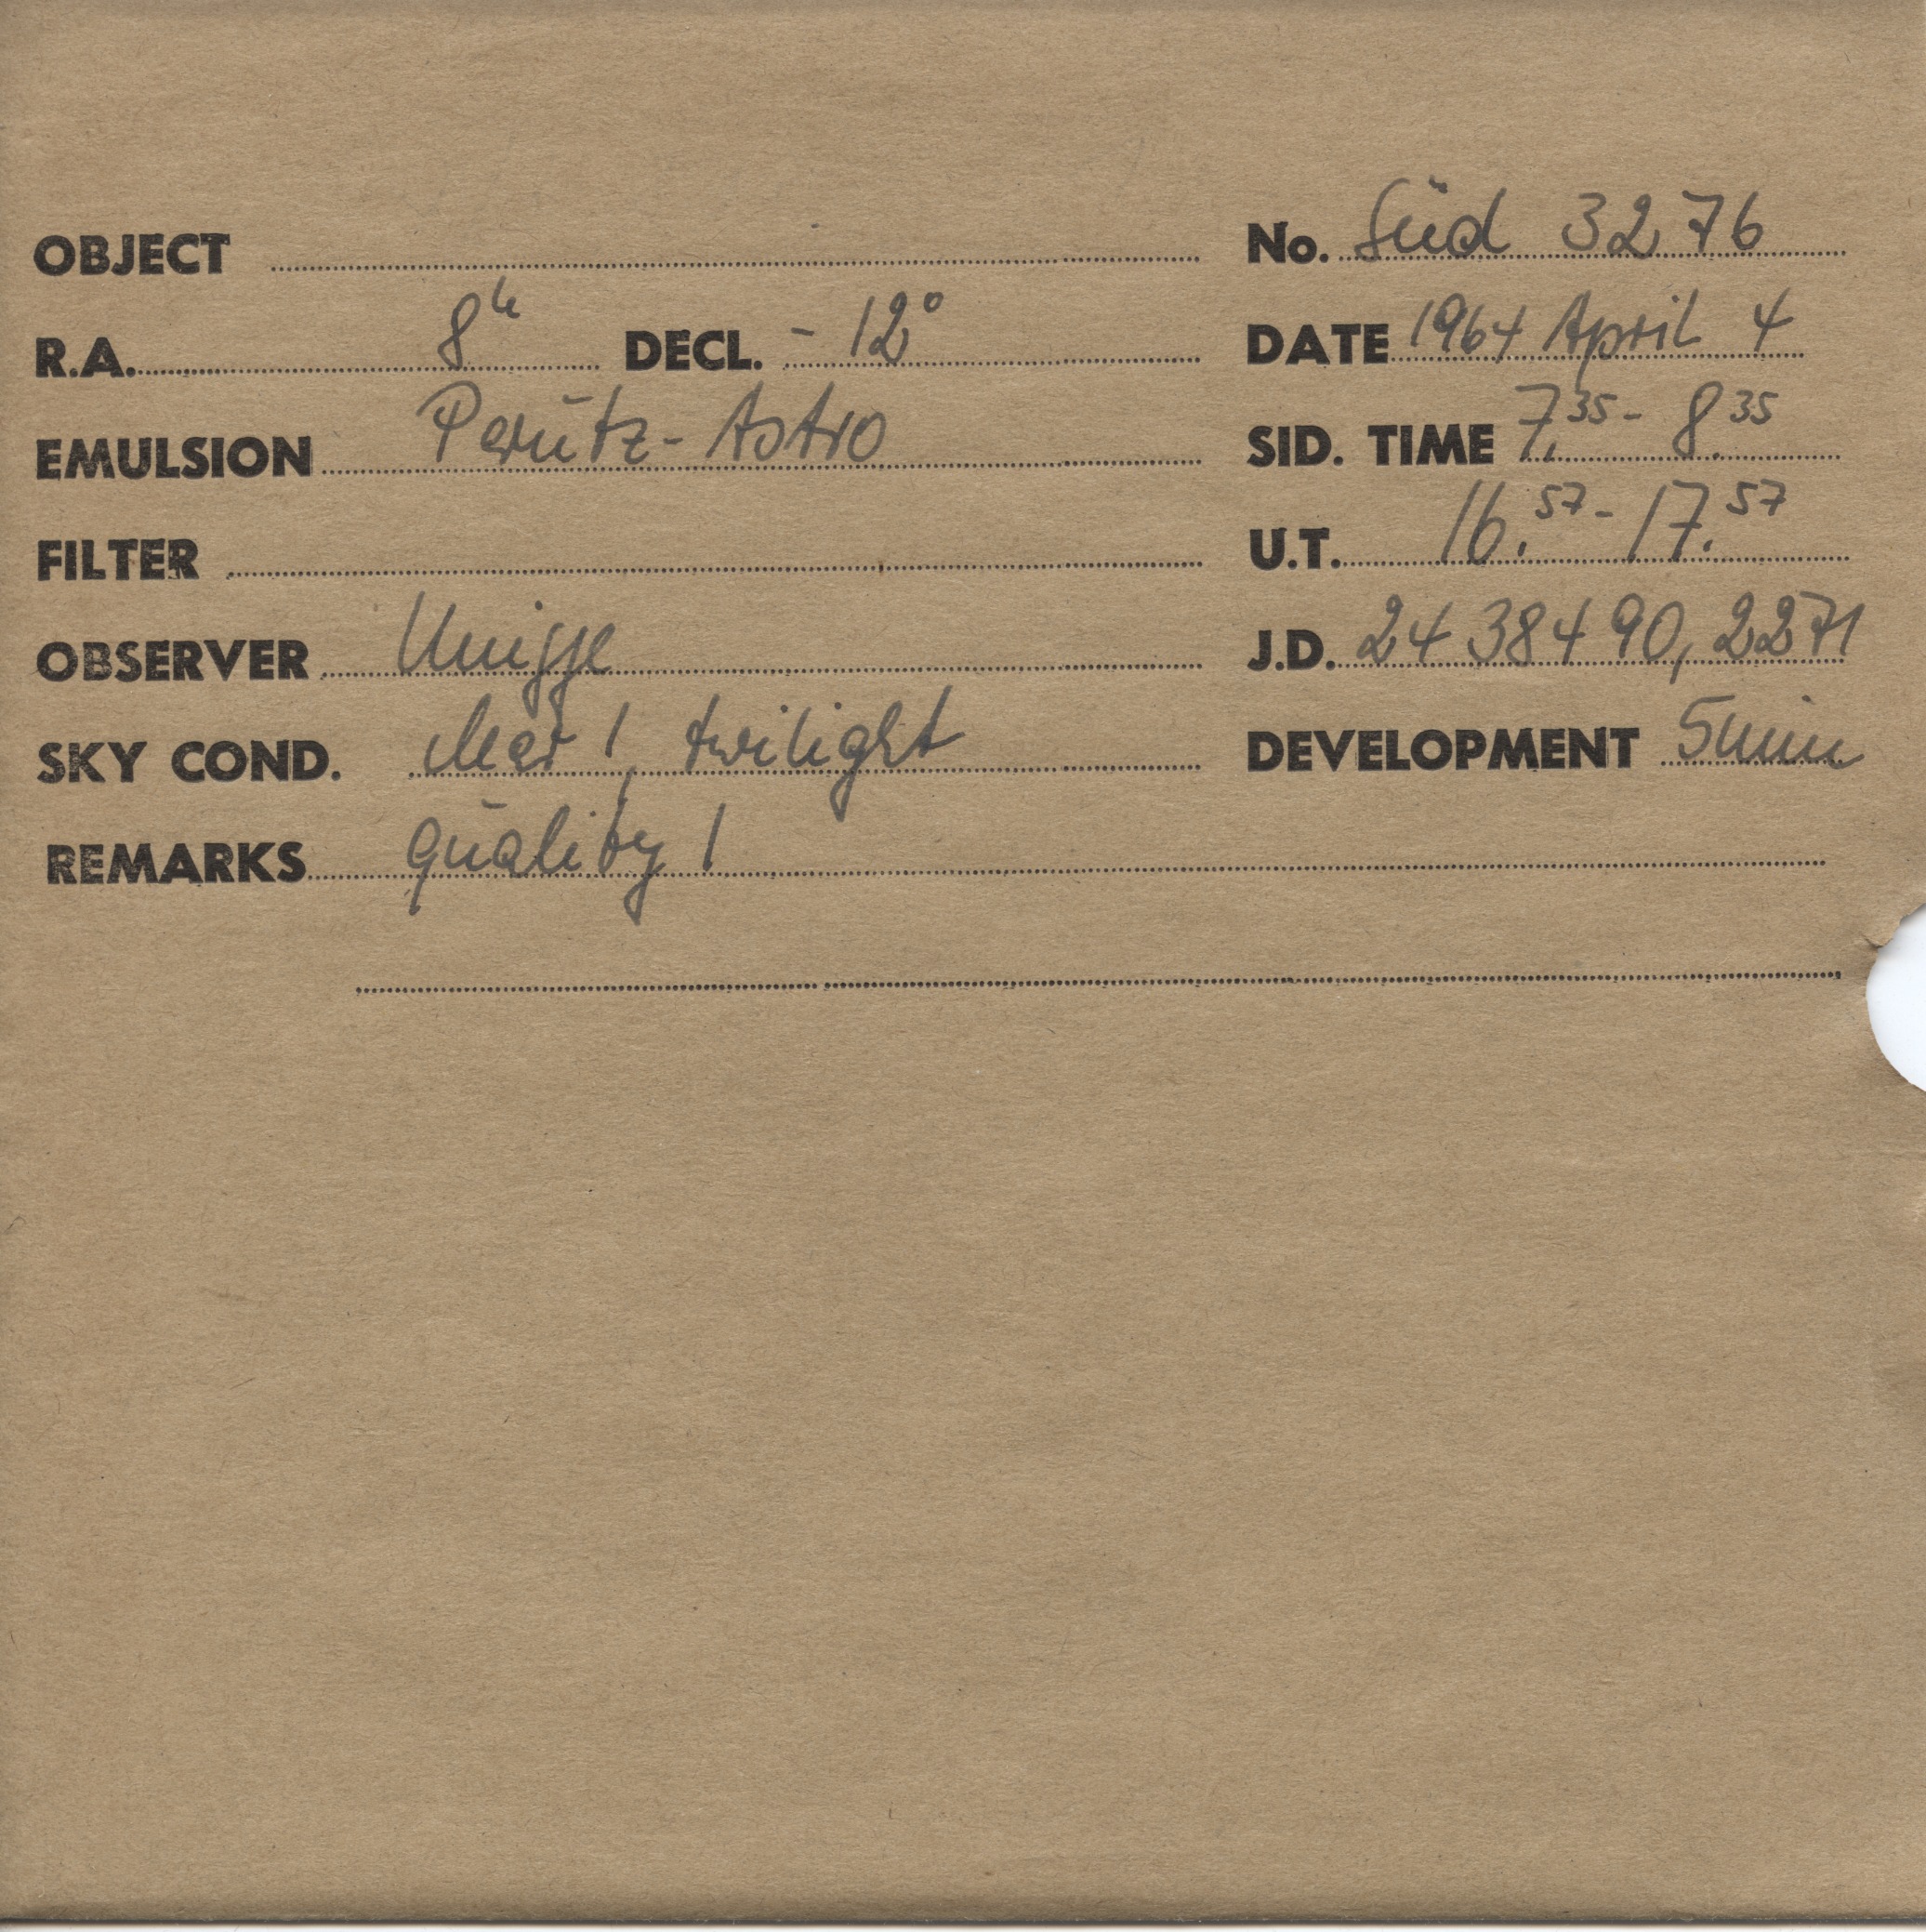 OBJECT No. Süd 3276
R.A. 8h DECL. - 12°
DATE 1964 April 4
EMULSION Perutz-Astro
SID. TIME 7.35 - 8.35
FILTER
U.T. 16.57 - 17.57
OBSERVER
J.D. 24 384 90, 2271
SKY COND. clear 1, twilight
DEVELOPMENT 5 min
REMARKS quality 1